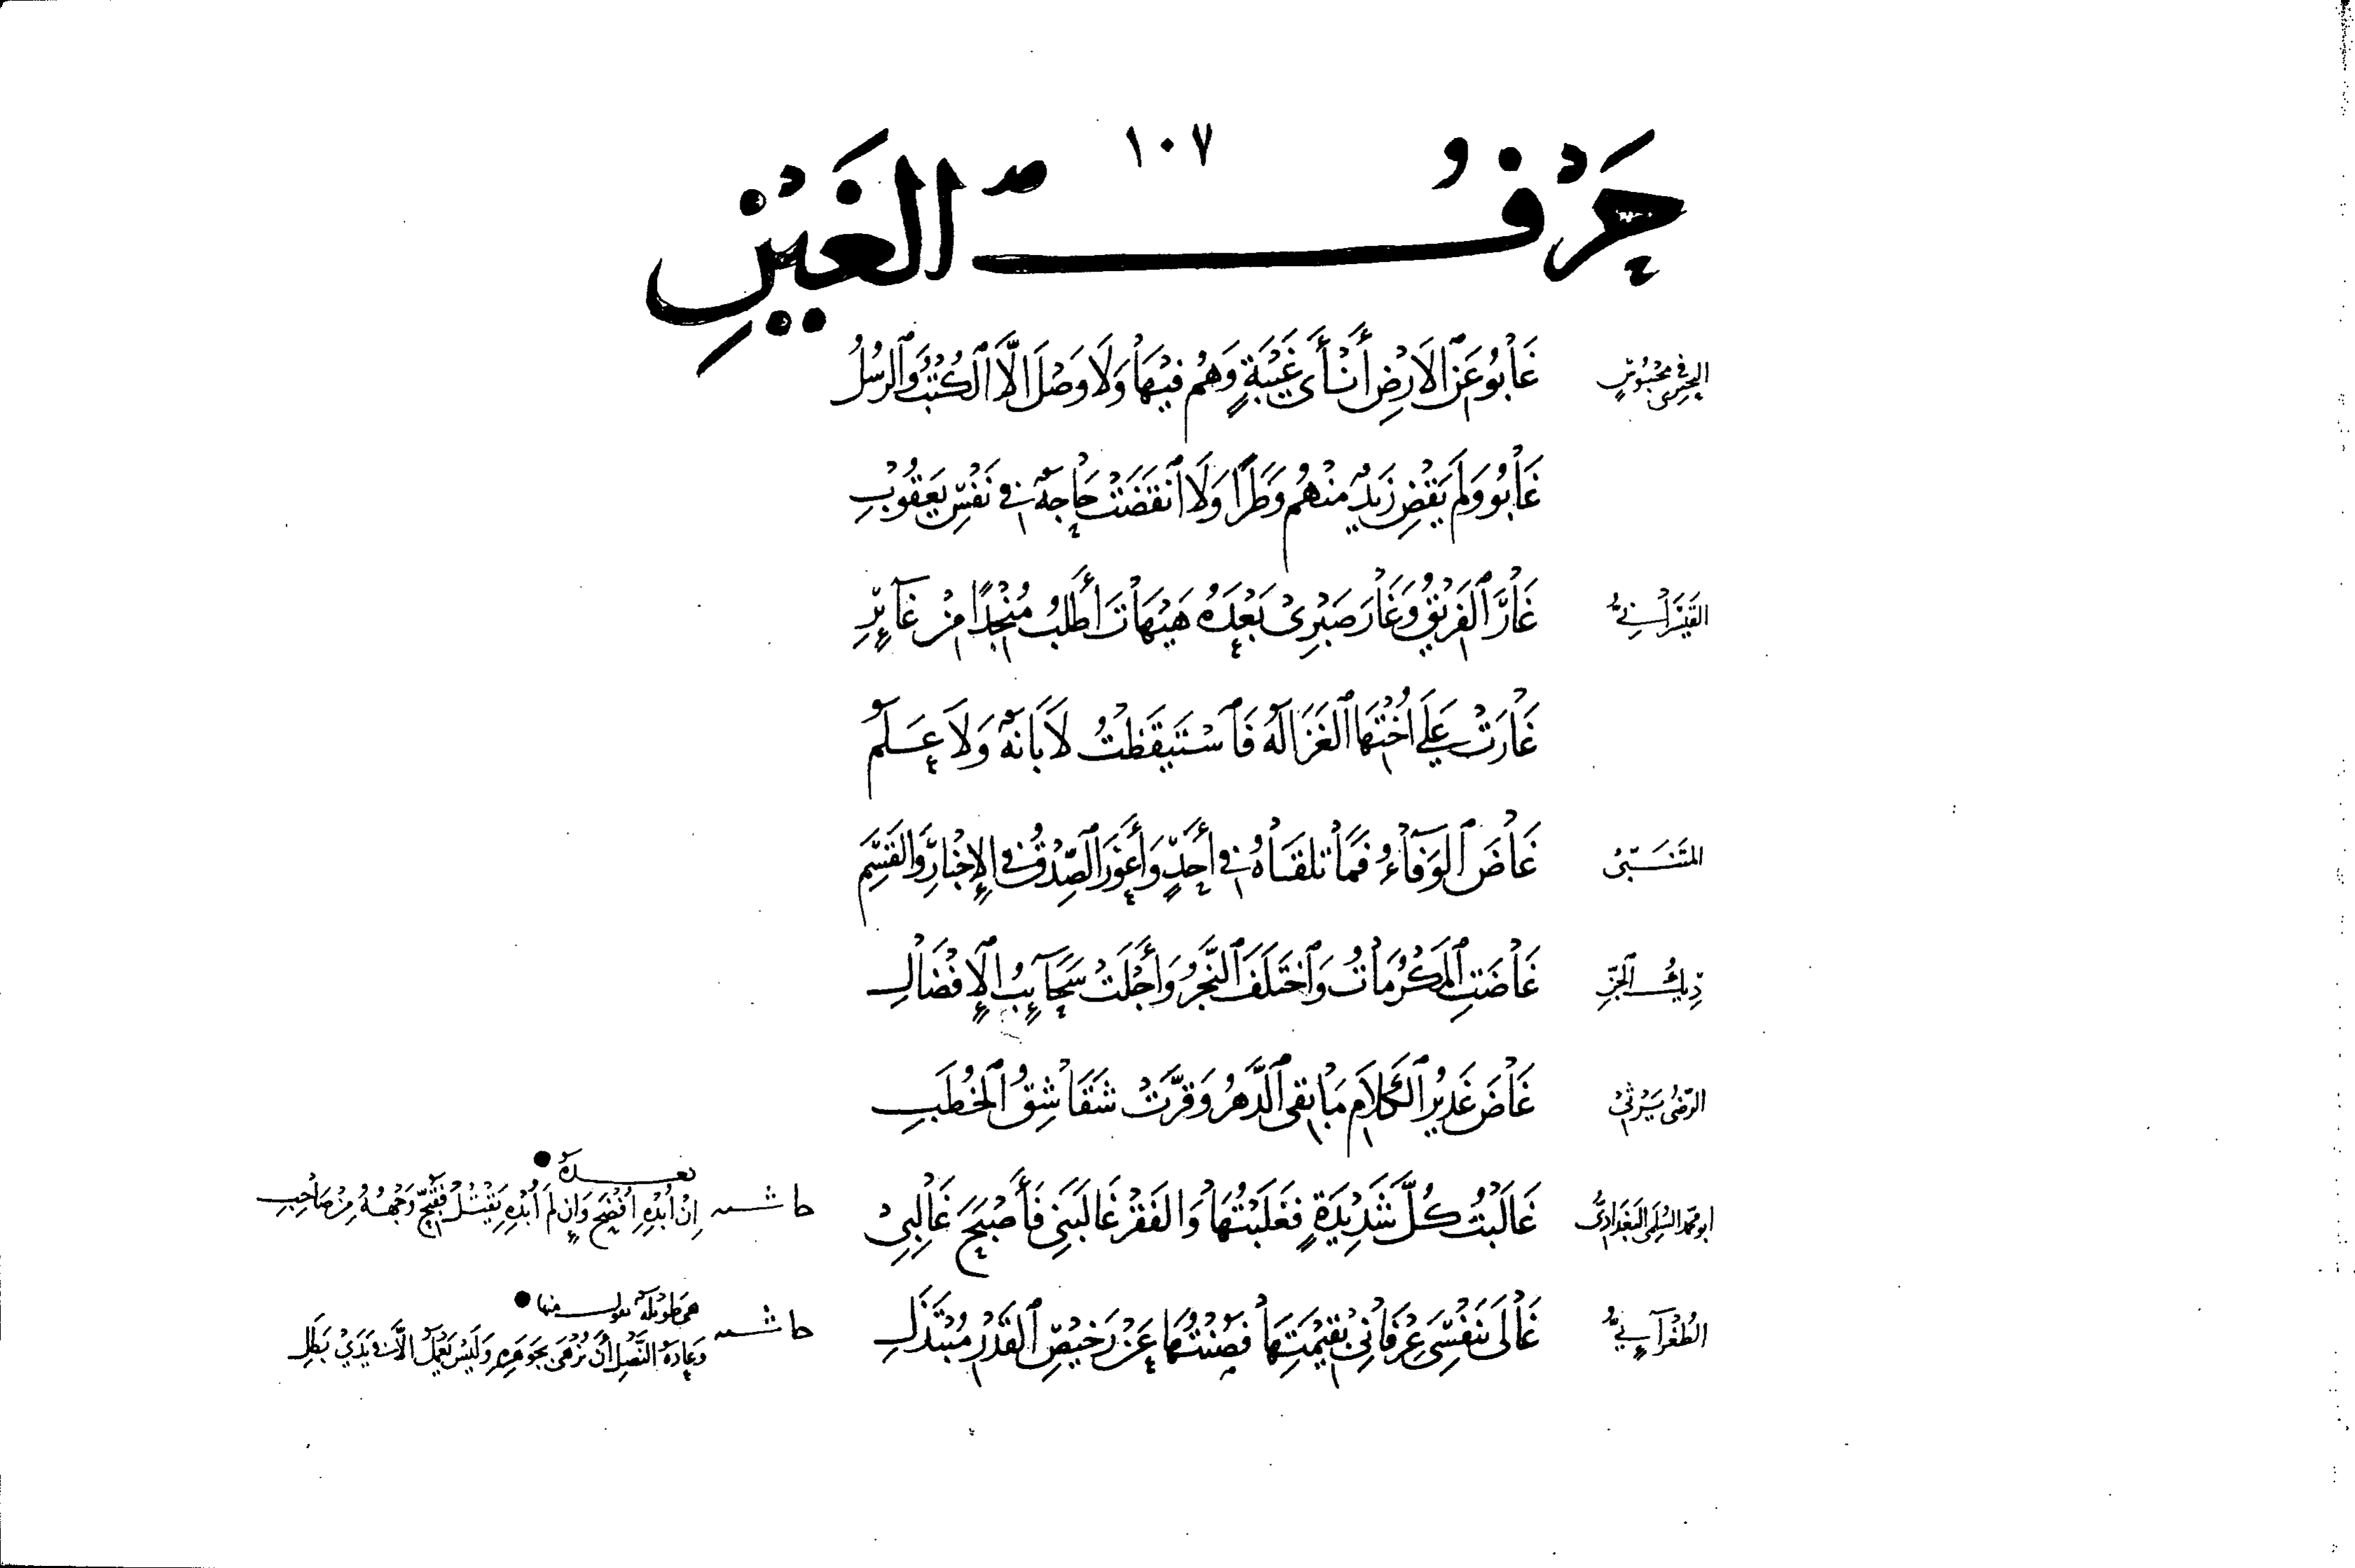 ١٠٧
حَرْفُ الغَيْنِ
البحتري في محبوس
غَابُو عَنِ الأَرْضِ أَنْأَى غَيْبَةٍ وَهُمُ فِيْهَا وَلَا وَصْلَ إلَّا الكُتْبُ وَالرُّسُلُ
غَابُو وَلَم يَقْضِ زَيدٌ مِنْهُم وَطَرًا وَلَا انقَضَتْ حَاجَةٌ فِي نَفْسِ يَعقُوْبِ
غَارَ الفَرِيْقُ وَغَارَ صَبْرِىْ بَعْدَهُ هَيْهَاتَ أَطْلُبُ مُنْجِدًا مِنْ غَآئِرِ
غَارَتْ عَلَى أُخْتِهَا الغَزَالَةُ فَاسْتَيقَظَتْ لَا بَانَةٌ وَلَا عَلَمٌ
المتَنَبّىُ
غَاضَ الوَفَاءُ فَمَا تلقَاهُ فِي أَحَدٍ وَأَعْوَزَ الصِّدْقُ فِي الإِخْبَارِ وَالقَسَمِ
دِيكُ الجِنِّ
غَاضَتِ المَكْرُمَاتُ وَاخْتَلَفَ النَّجْرُ وَأَجْلَتْ سَحَآئِبُ الإِفْضَالِ
الرّضىُ يَرْثِي
غَاضَ غَدِيْرُ الكَلَامِ مَا بَقِى الدَّهرُ وَقَرَّتْ شَقَاشِقُ الخُطَبِ
ابو محمد السُّلَمى البَغدَادِىُّ
غَالَبْتُ كُلَّ شَدِيْدَةٍ فَغَلَبْتُهَا وَالفَقْرُ غَالَبَنِي فَأَصْبَحَ غَالِبِىْ
حاشية
بعده
إِنْ أُبْدِهِ أَفضَحْ وَإِن لَم أُبْدِهِ يَقْتُلْ فَقُبِّحَ وَجْهُهُ مِنْ صَاحِبِ
الطُغْرَآئِيُّ
غَالَى بنَفْسِىَ عِرْفَانِىْ بقِيْمَتِهَا فَصُنْتُهَا عَنْ رَخيْصِ القَدْرِ مُبْتَذَلِ
حاشية
وَعَادَةُ النَّصْلِ أَنْ يُزْهَى بجَوهَرِهِ وَلَيْسَ يَعْمَلُ إلَّا فِي يَدَيْ بَطَلِ